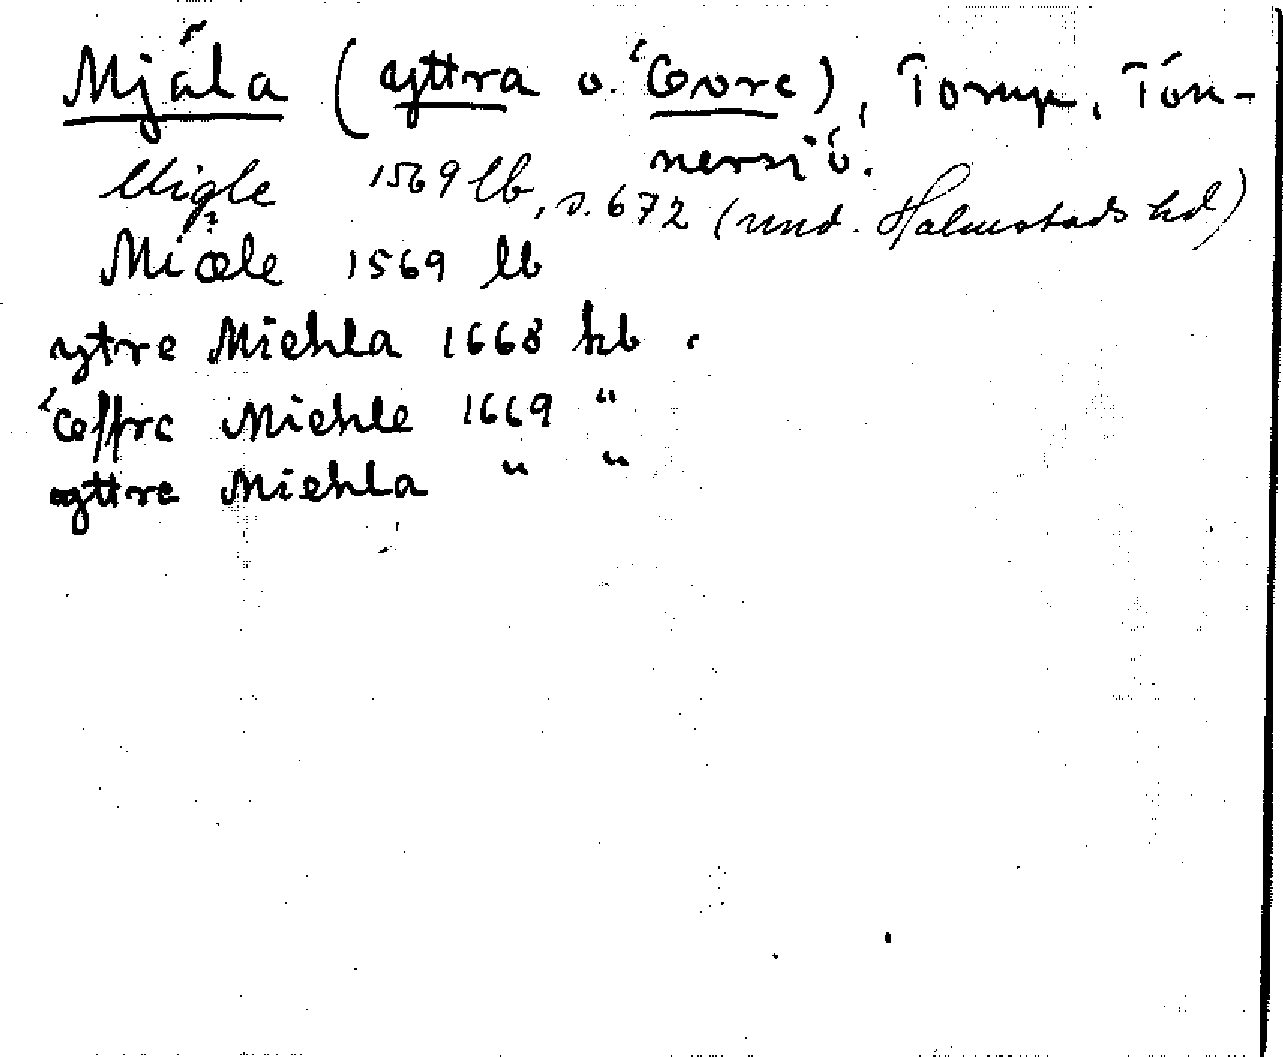 Mjäla (yttra o. Övre), Torup, Tön-
nersjö.
Migle 1569 lb, s. 672 (und. Halmstads hd)
Miæle 1569 lb
ytre Miehla 1668 kb.
Öffre Miehle 1669 "
yttre Miehla " "